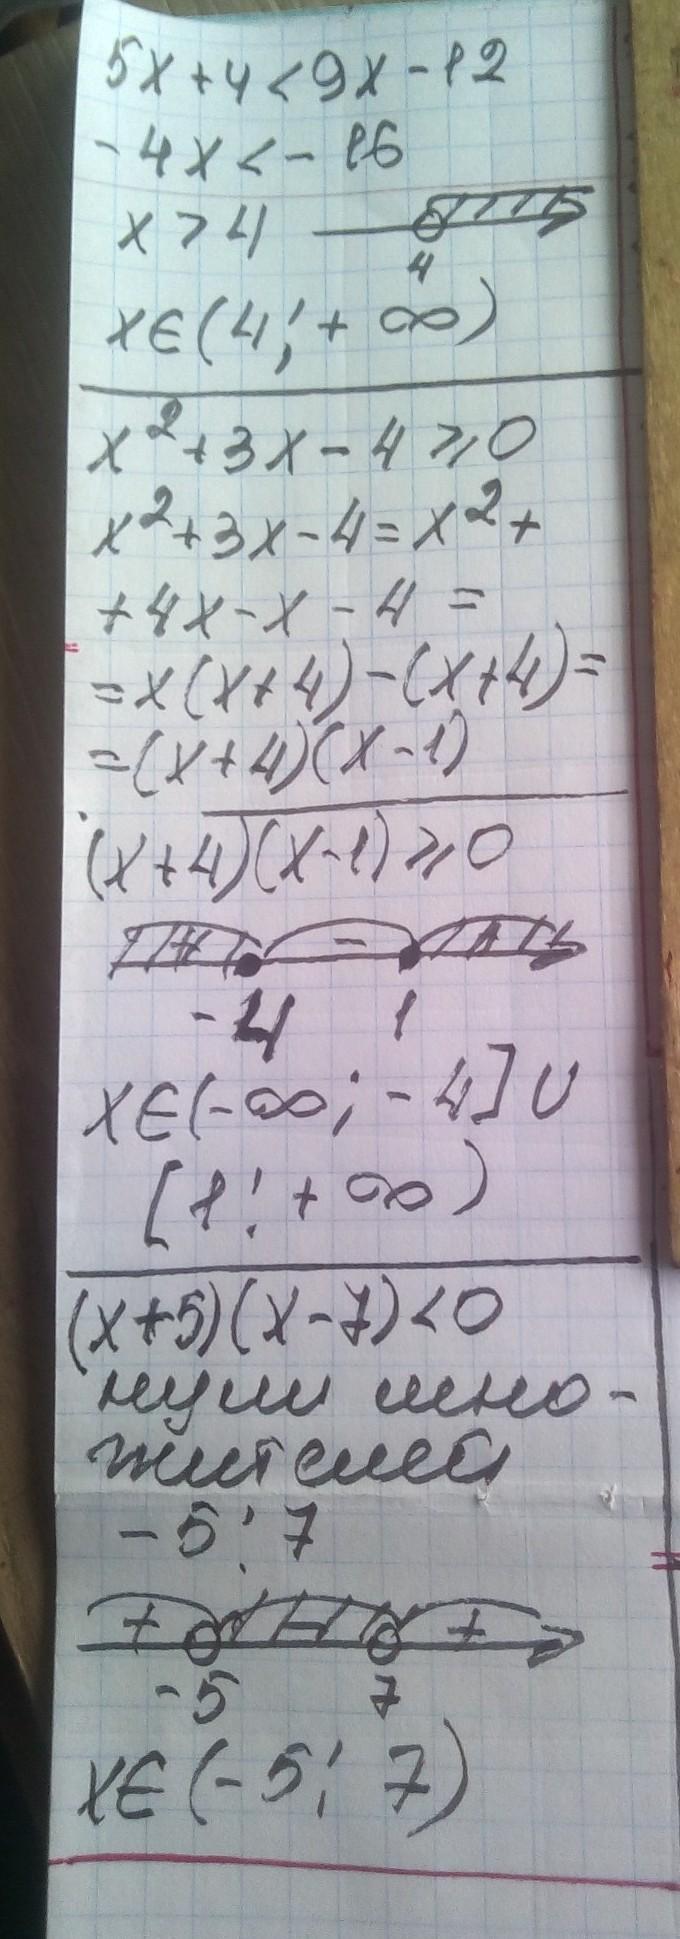 5x+4<9x-12
-4x<-16
x>4
4
x∈(4;+∞)
x²+3x-4⩾0
x²+3x-4=x²+
+4x-x-4=
=x(x+4)-(x+4)=
=(x+4)(x-1)
(x+4)(x-1)⩾0
+ - +
-4 1
x∈(-∞;-4]∪
[1;+∞)
(x+5)(x-7)<0
нули мно-
жителей
-5;7
+ - +
-5 7
x∈(-5;7)